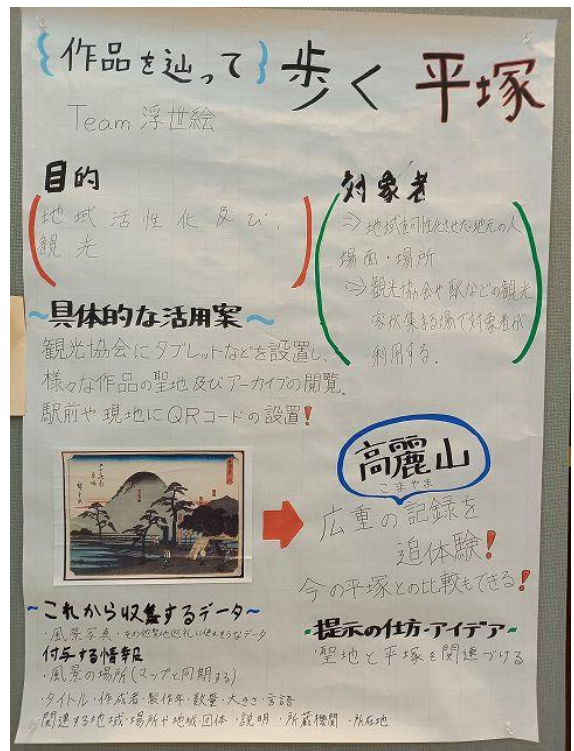 {作品を辿って}歩く 平塚
Team 浮世絵
目的
地域活性化及び、
観光
対象者
⇒地域を活性化させたい地元の人
場面・場所
⇒観光協会や駅などの観光
客が集まる場で対象者が
利用する.
~具体的な活用案~
観光協会にタブレットなどを設置し、
様々な作品の聖地及びアーカイブの閲覧。
駅前や現地にQRコードの設置!
高麗山
こまやま
広重の記録を
追体験!
今の平塚との比較もできる!
~これから収集するデータ~
・風景写真・その他聖地巡礼に使えそうなデータ
付与する情報
・風景の場所(マップと同期する)
・タイトル・作成者・製作年・数量・大きさ・言語
関連する地域・場所や地域・団体・説明・所蔵機関・所在地
・提示の仕方・アイデア・
・聖地と平塚を関連づける